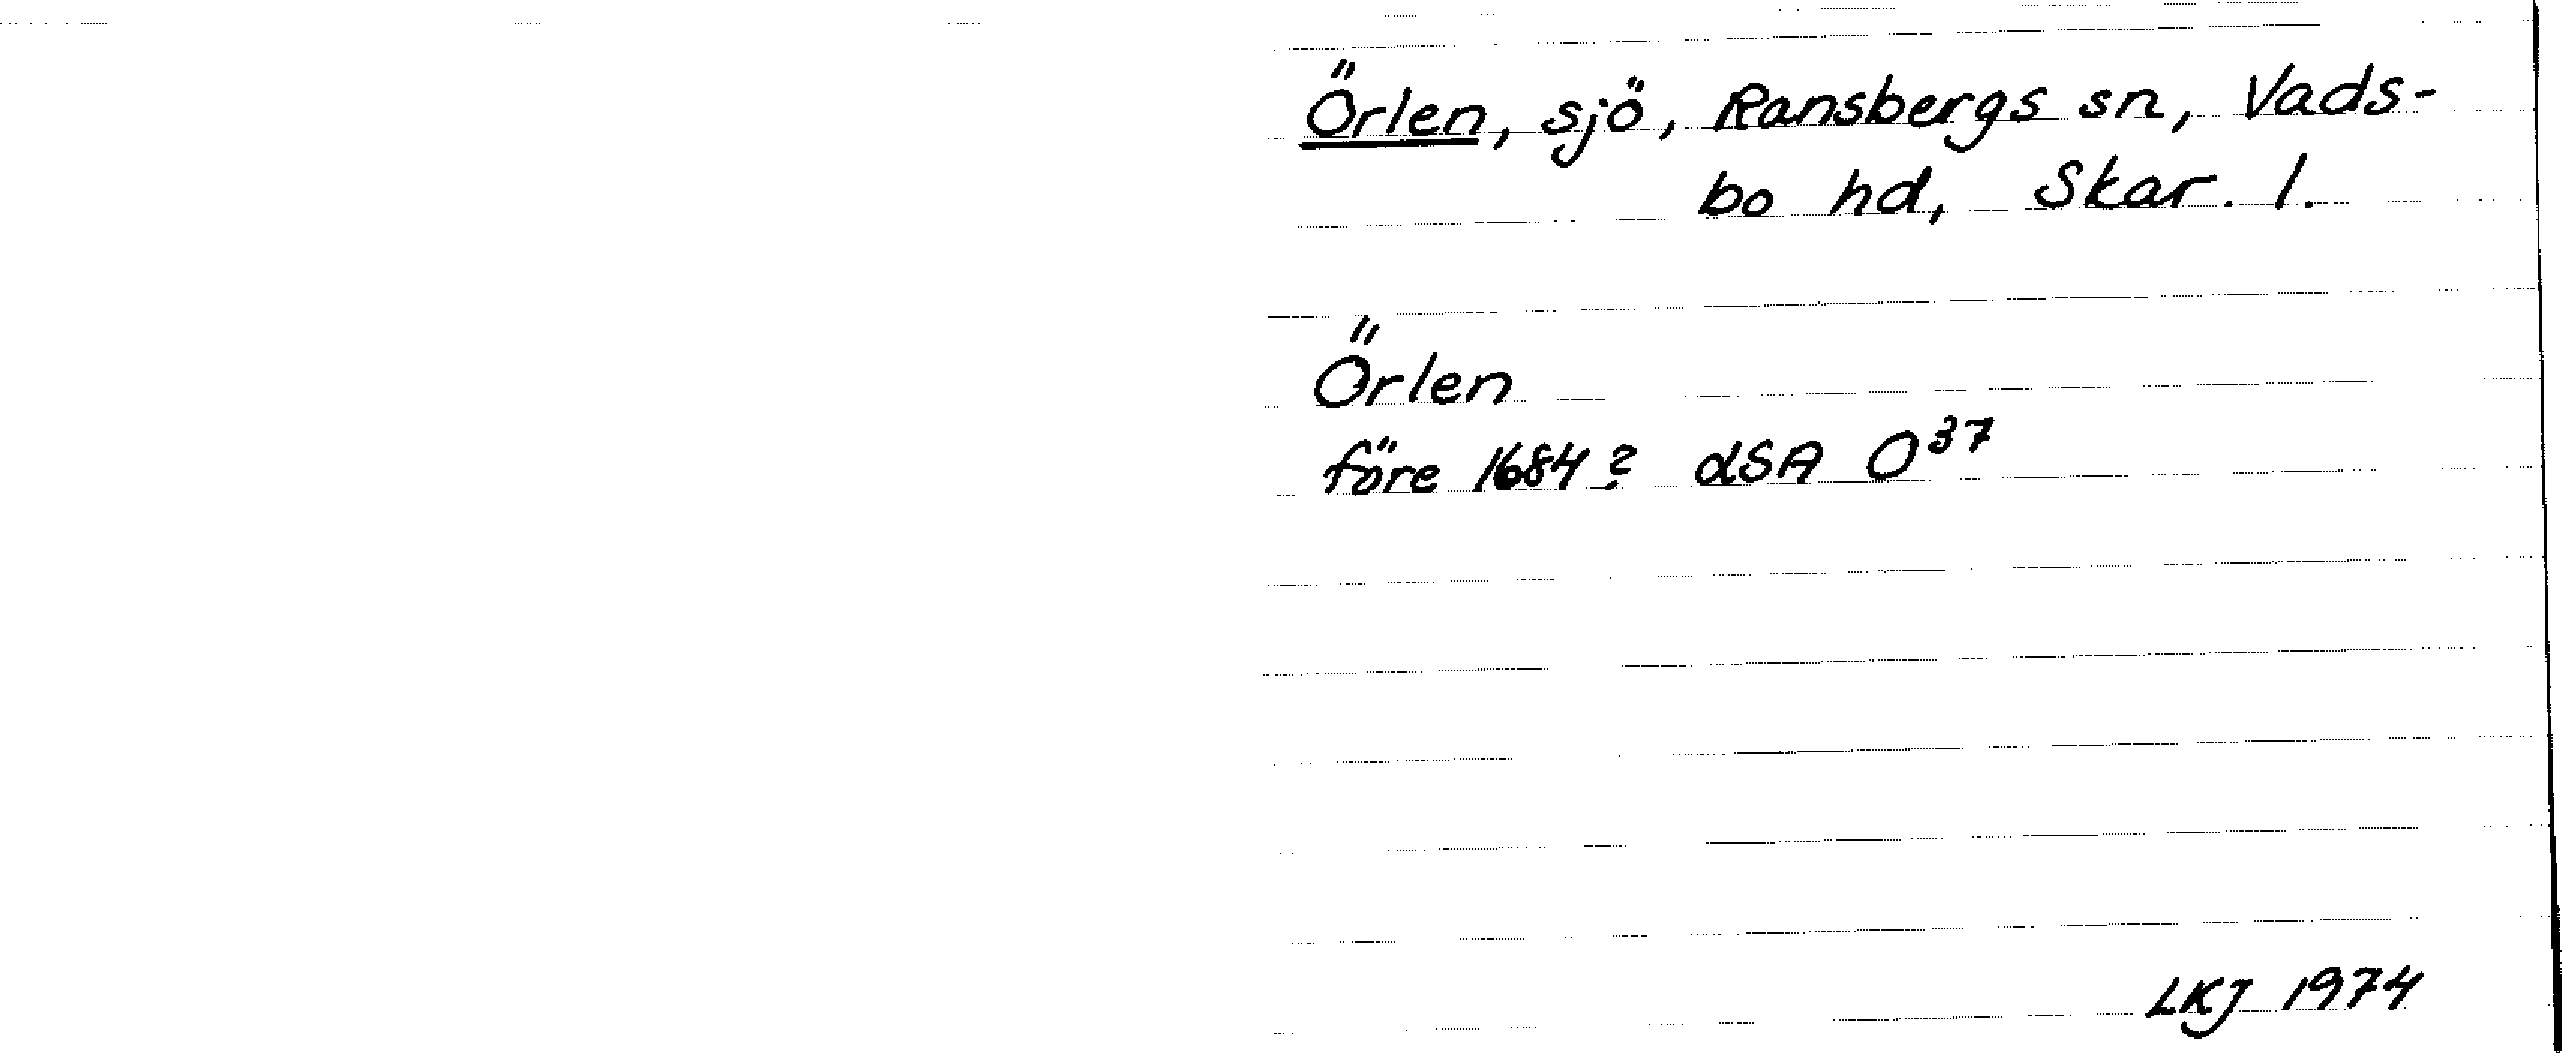 Örlen, sjö, Ransbergs sn, Vads-
bo hd, Skar. l.
Örlen
före 1684? dSA O³⁷
LKJ 1974